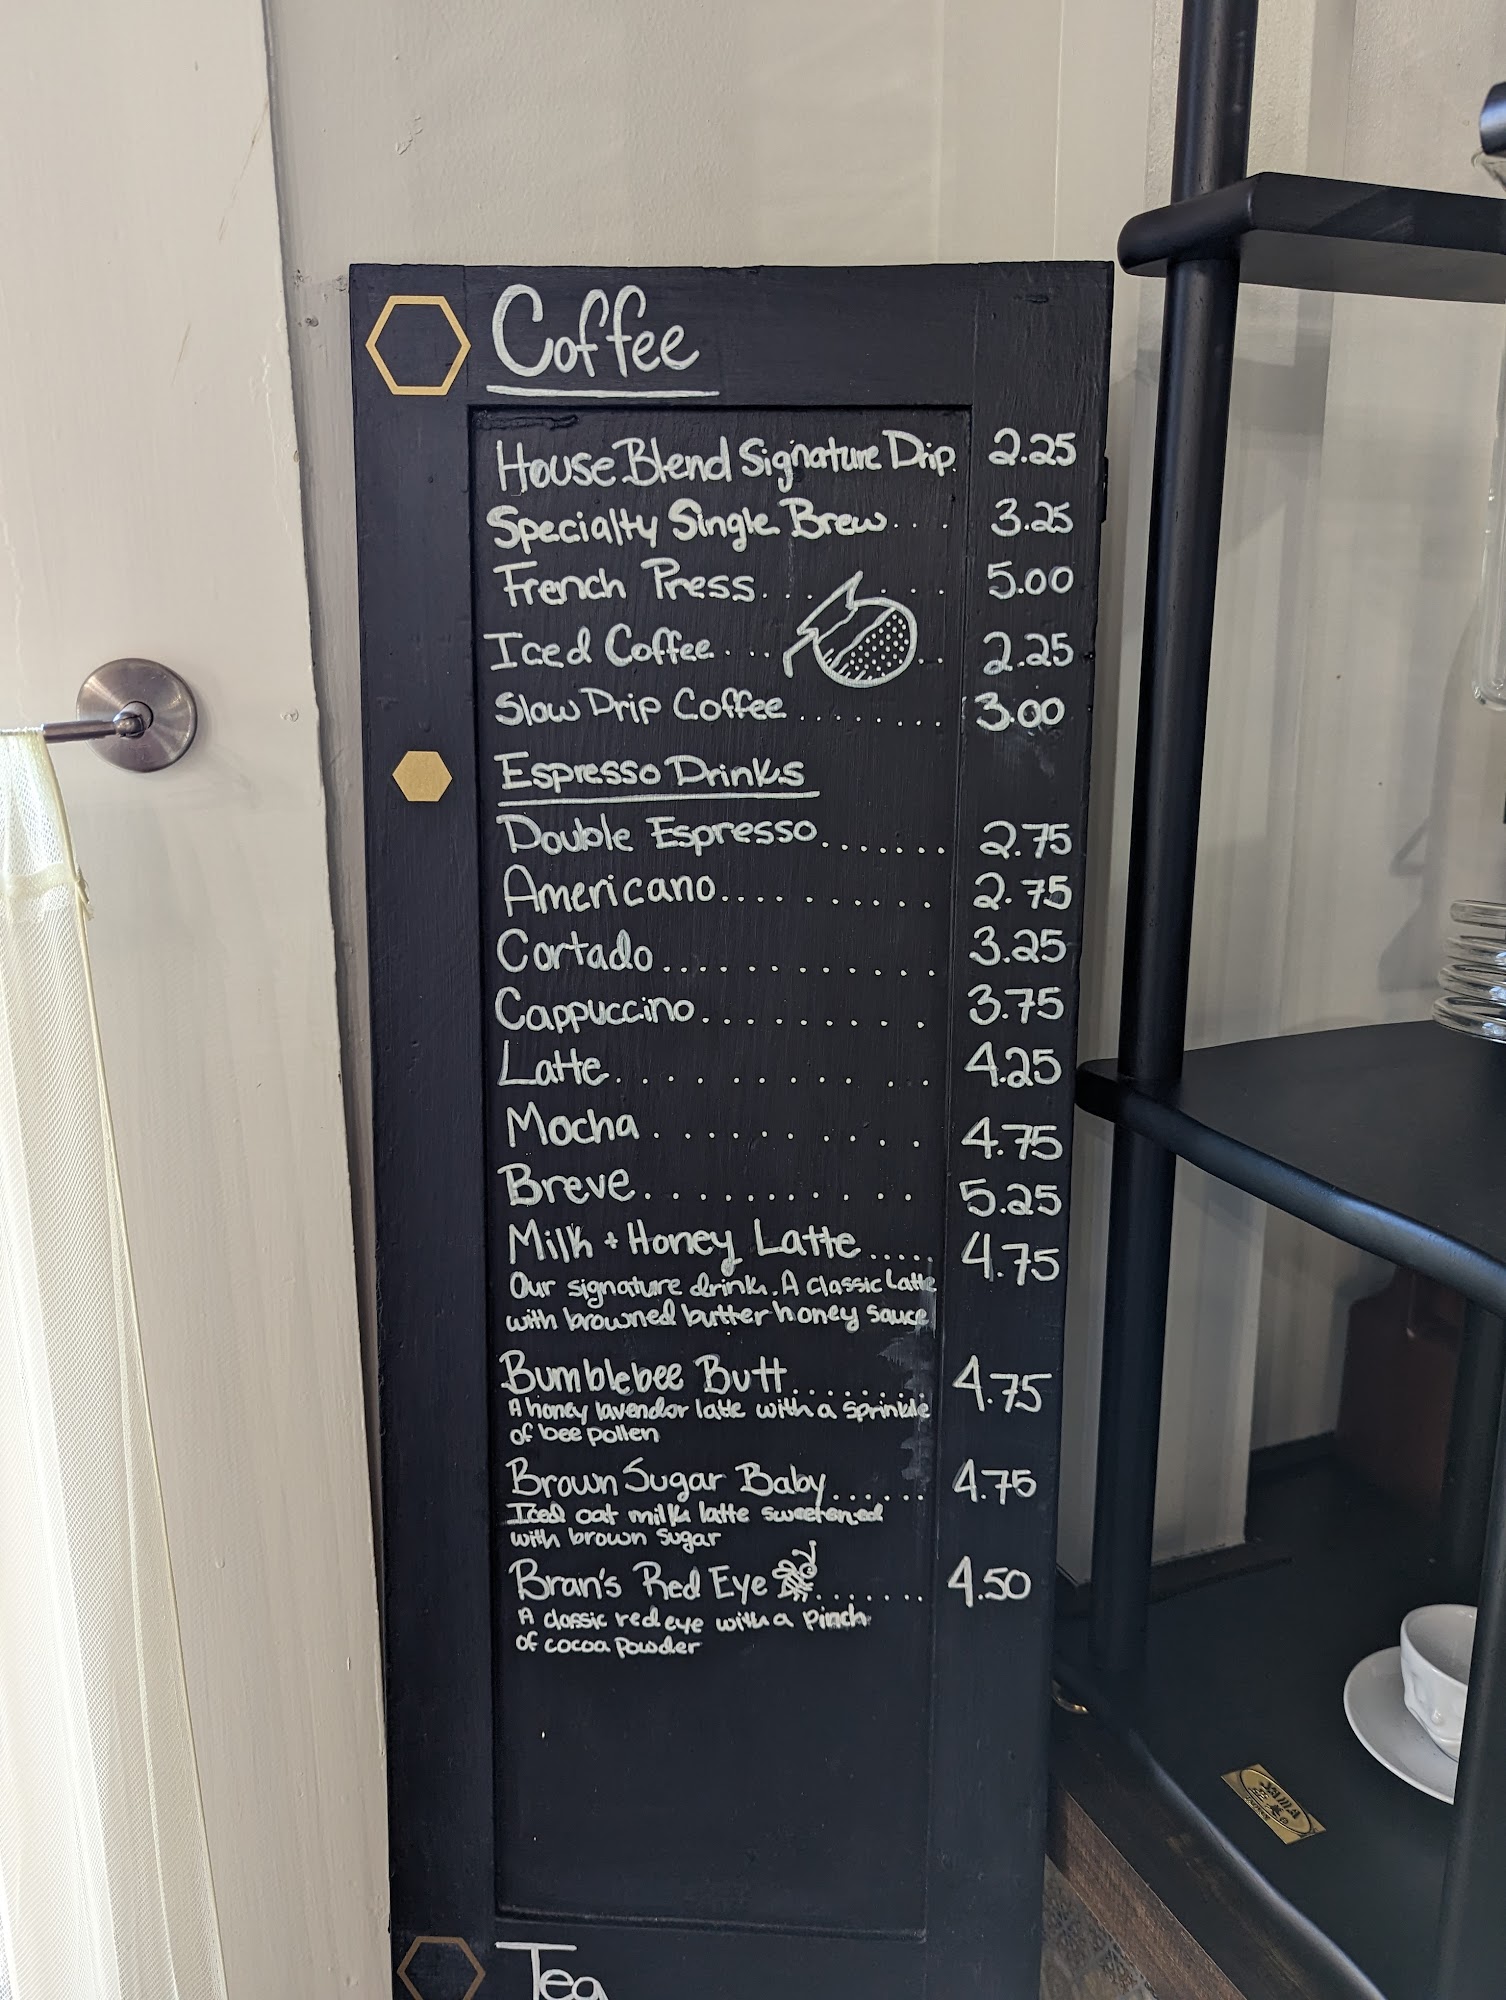 Coffee
House Blend Signature Drip. 2.25
Specialty Single Brew... 3.25
French Press........ 5.00
Iced Coffee....... 2.25
Slow Drip Coffee........ 3.00
Espresso Drinks
Double Espresso....... 2.75
Americano.......... 2.75
Cortado............ 3.25
Cappuccino.......... 3.75
Latte............ 4.25
Mocha.......... 4.75
Breve........... 5.25
Milk + Honey Latte..... 4.75
Our signature drink. A classic Latte
with browned butter honey sauce
Bumblebee Butt........ 4.75
A honey lavendor latte with a sprinkle
of bee pollen
Brown Sugar Baby...... 4.75
Iced oat milk latte sweetened
with brown sugar
Bran's Red Eye....... 4.50
A classic red eye with a pinch
of cocoa powder
Tea
YAMA